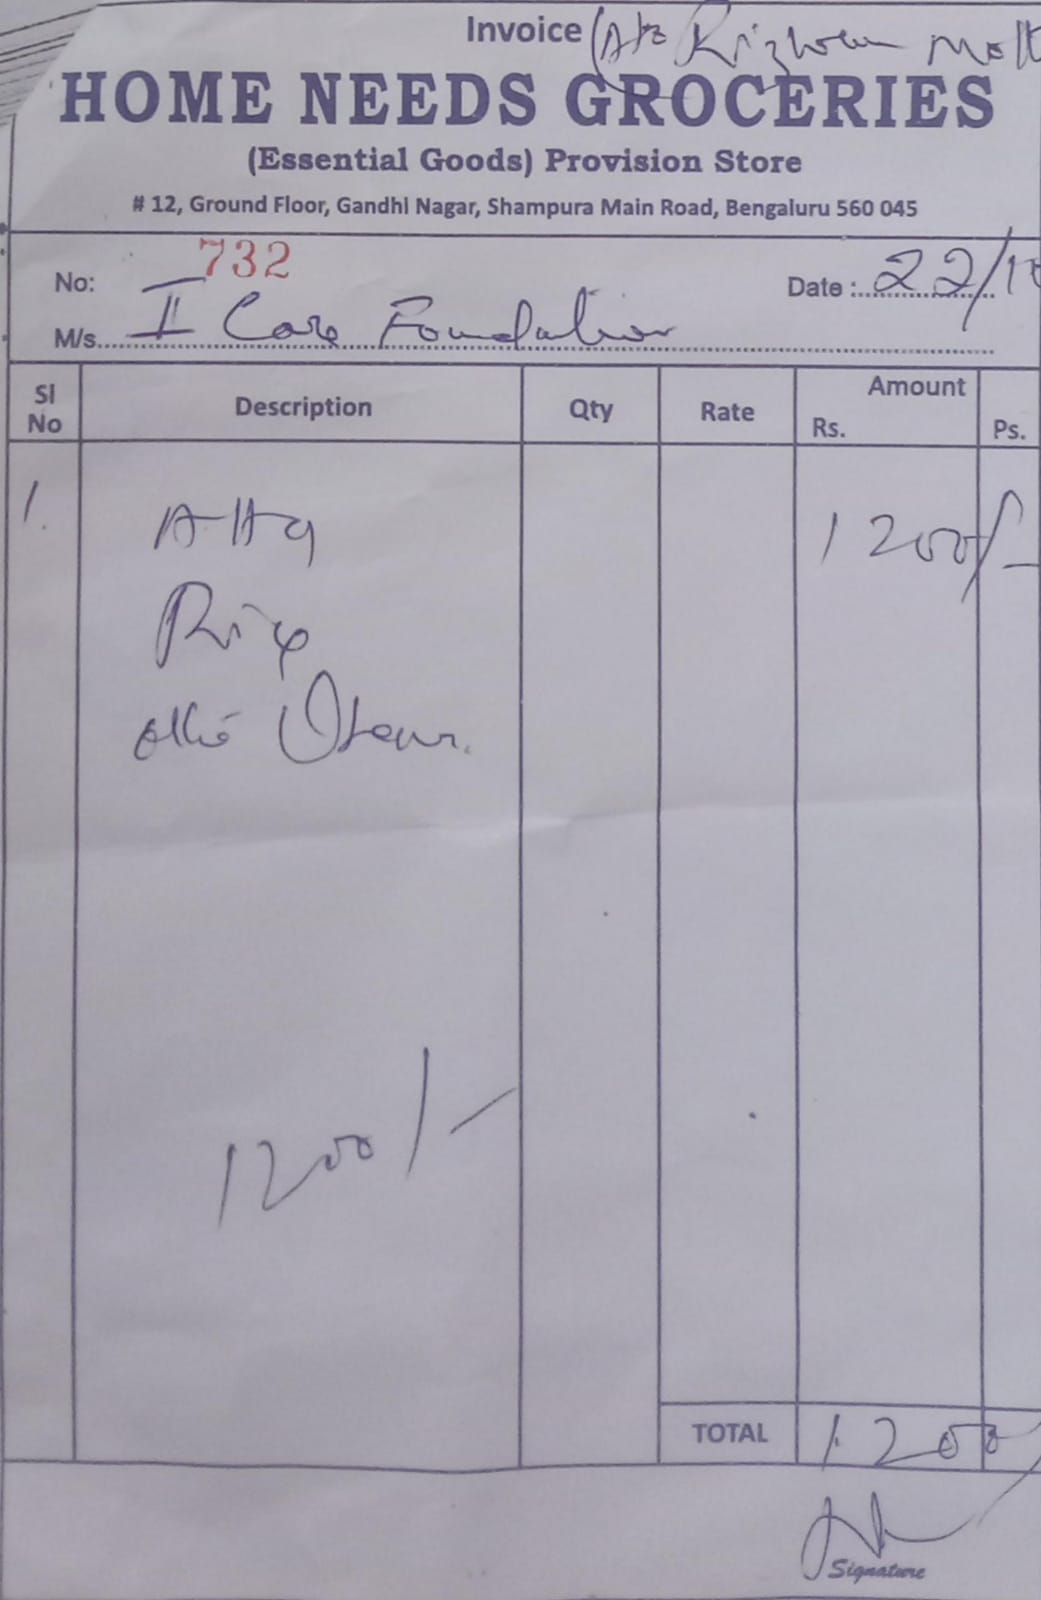 Invoice
HOME NEEDS GROCERIES
(Essential Goods) Provision Store
# 12, Ground Floor, Gandhi Nagar, Shampura Main Road, Bengaluru 560 045
No: 732
Date : 22/10
M/s. I Care Foundation
Sl No Description Qty Rate Amount Rs. Ps.
1. Atta 1200/-
Rice
1200/-
TOTAL 1200
Signature